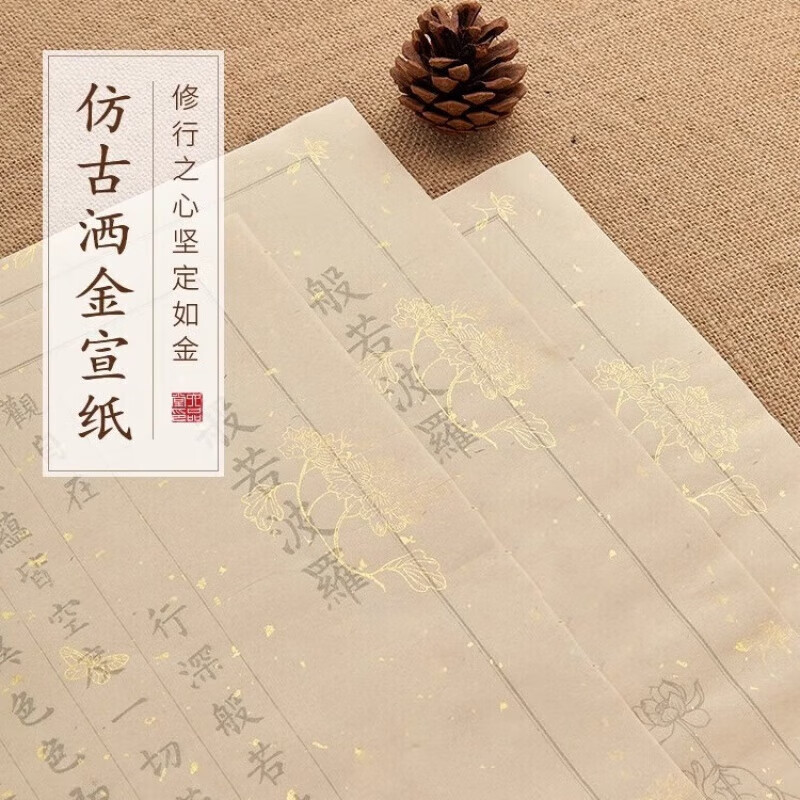 仿古洒金宣纸
修行之心坚定如金
般若波羅
般若波羅
觀自在
行深般若
蘊皆空度一切
異色色